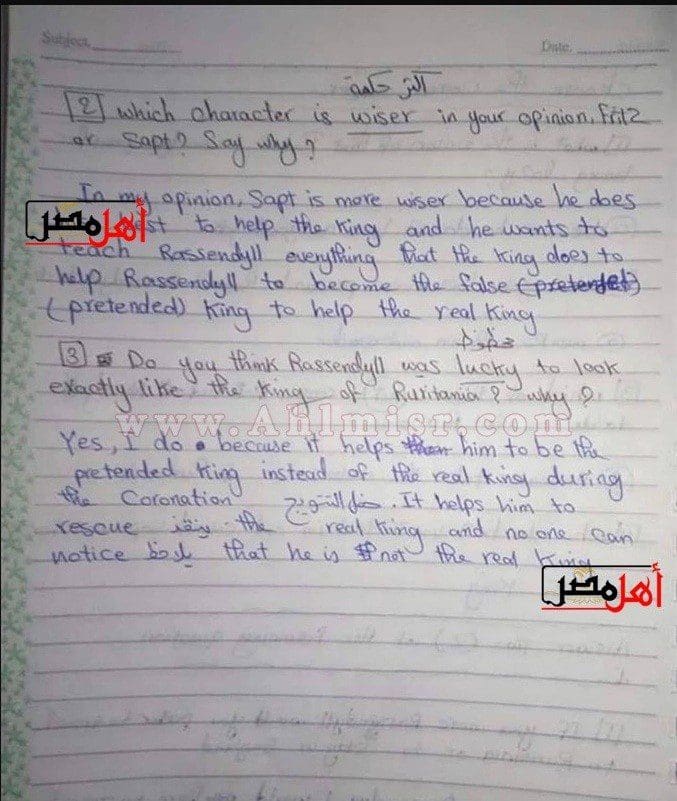 Subject
Date
أكثر حكمة
[2] which character is wiser in your opinion, Fritz
or Sapt? Say why?
In my opinion, Sapt is more wiser because he does
أهل مصر
best to help the King and he wants to
teach Rassendyll everything that the King does to
help Rassendyll to become the false (pretended)
(pretended) King to help the real King
محظوظ
[3] Do you think Rassendyll was lucky to look
exactly like the King of Ruritania? why?
www.Ahlmisr.com
Yes, I do because it helps him to be the
pretended King instead of the real King during
the Coronation حفل التتويج. It helps him to
rescue ينقذ the real King and no one can
notice يلاحظ that he is not the real King
أهل مصر